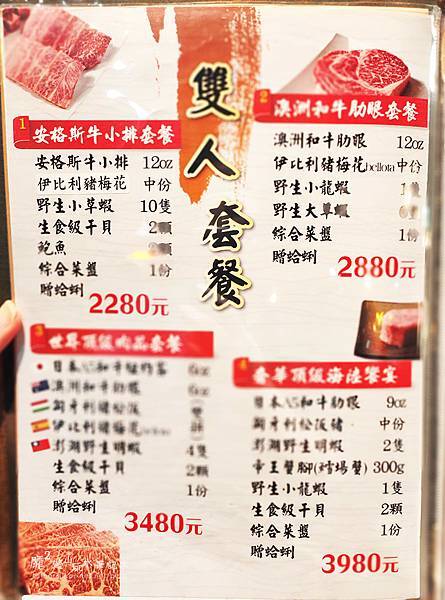 雙人套餐
1 安格斯牛小排套餐
安格斯牛小排 12oz
伊比利豬梅花 中份
野生小草蝦 10隻
生食級干貝 2顆
鮑魚
綜合菜盤 1份
贈蛤蜊
2280元
2 澳洲和牛肋眼套餐
澳洲和牛肋眼 12oz
伊比利豬梅花bellota 中份
野生小龍蝦 1隻
野生大草蝦
綜合菜盤 1份
贈蛤蜊
2880元
3 世界頂級肉品套餐
日本A5和牛 6oz
澳洲和牛肋眼 6oz
匈牙利豬松阪
伊比利豬梅花
澎湖野生明蝦 4隻
生食級干貝 2顆
綜合菜盤 1份
贈蛤蜊
3480元
4 奢華頂級海陸饗宴
日本A5和牛肋眼 9oz
匈牙利松阪豬 中份
澎湖野生明蝦 2隻
帝王蟹腳(鱈場蟹) 300g
野生小龍蝦 1隻
生食級干貝 2顆
綜合菜盤 1份
贈蛤蜊
3980元